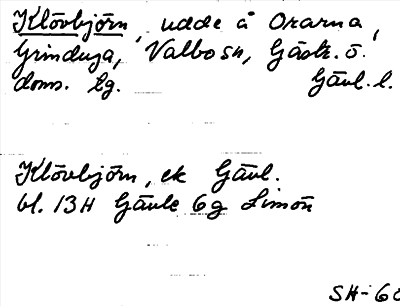 Klövbjörn, udde å Orarna,
Grinduga, Valbo sn, Gästr. ö.
doms. lg. Gävl. l.
Klövbjörn, ek Gävl.
bl. 13H Gävle 6g Limön
SH-68